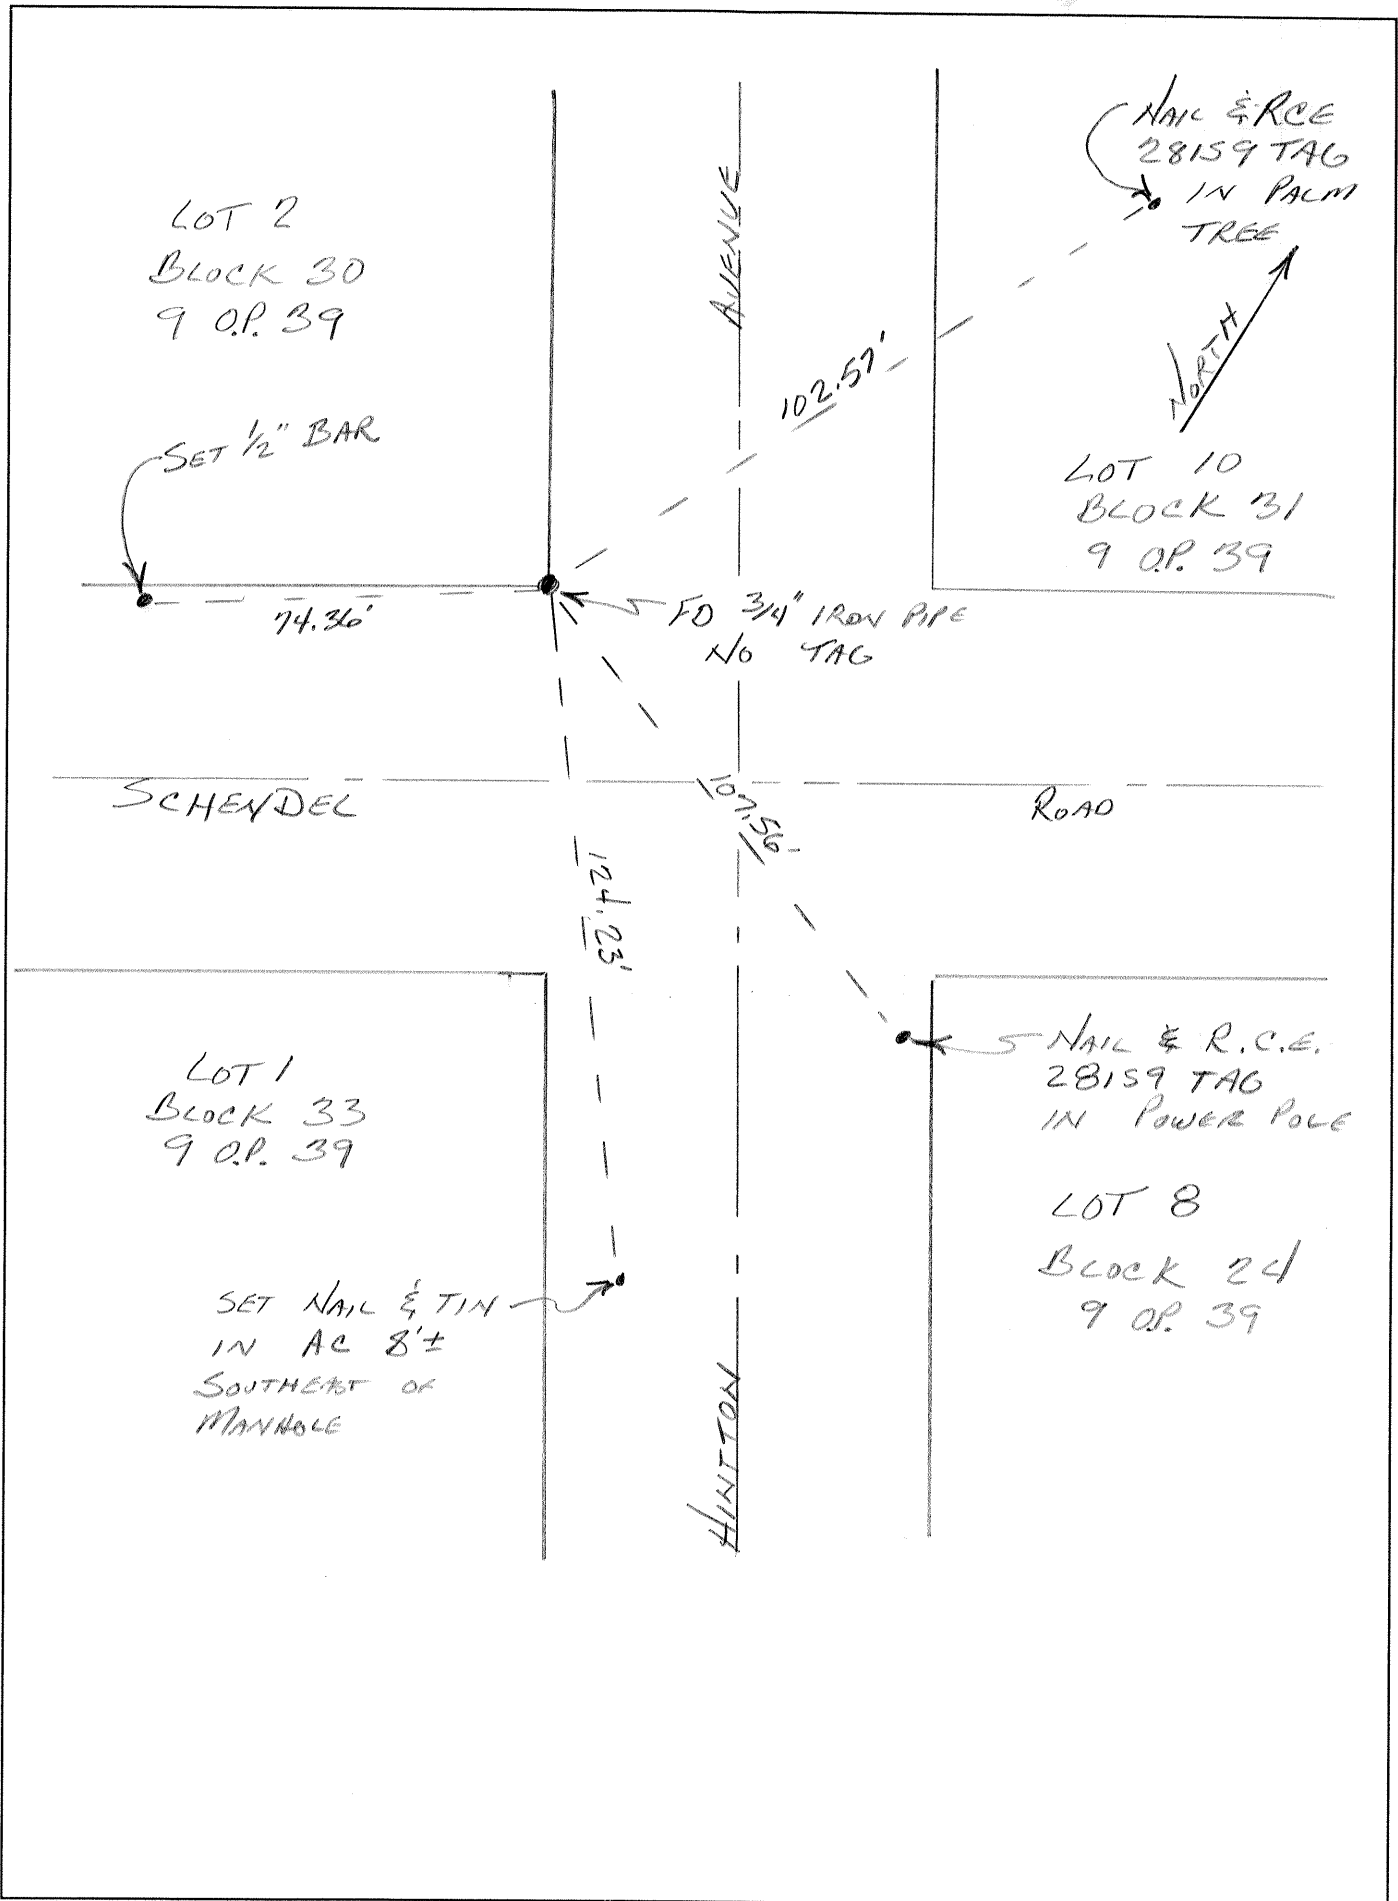 LOT 2
BLOCK 30
9 O.P. 39
AVENUE
NAIL & RCE
28159 TAG
IN PALM
TREE
NORTH
102.57'
SET 1/2" BAR
LOT 10
BLOCK 31
9 O.P. 39
74.36'
FD 3/4" IRON PIPE
NO TAG
SCHENDEL
ROAD
107.56'
124.23'
LOT 1
BLOCK 33
9 O.P. 39
NAIL & R.C.E.
28159 TAG
IN POWER POLE
LOT 8
BLOCK 24
9 O.P. 39
SET NAIL & TIN
IN AC 8'±
SOUTHEAST OF
MANHOLE
HINTTON